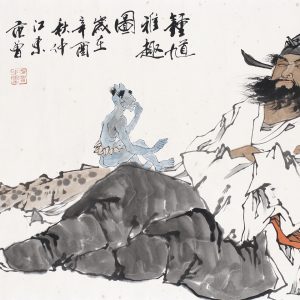 鍾馗
雅趣
圖
歲在
辛酉
秋仲
江東
范曾